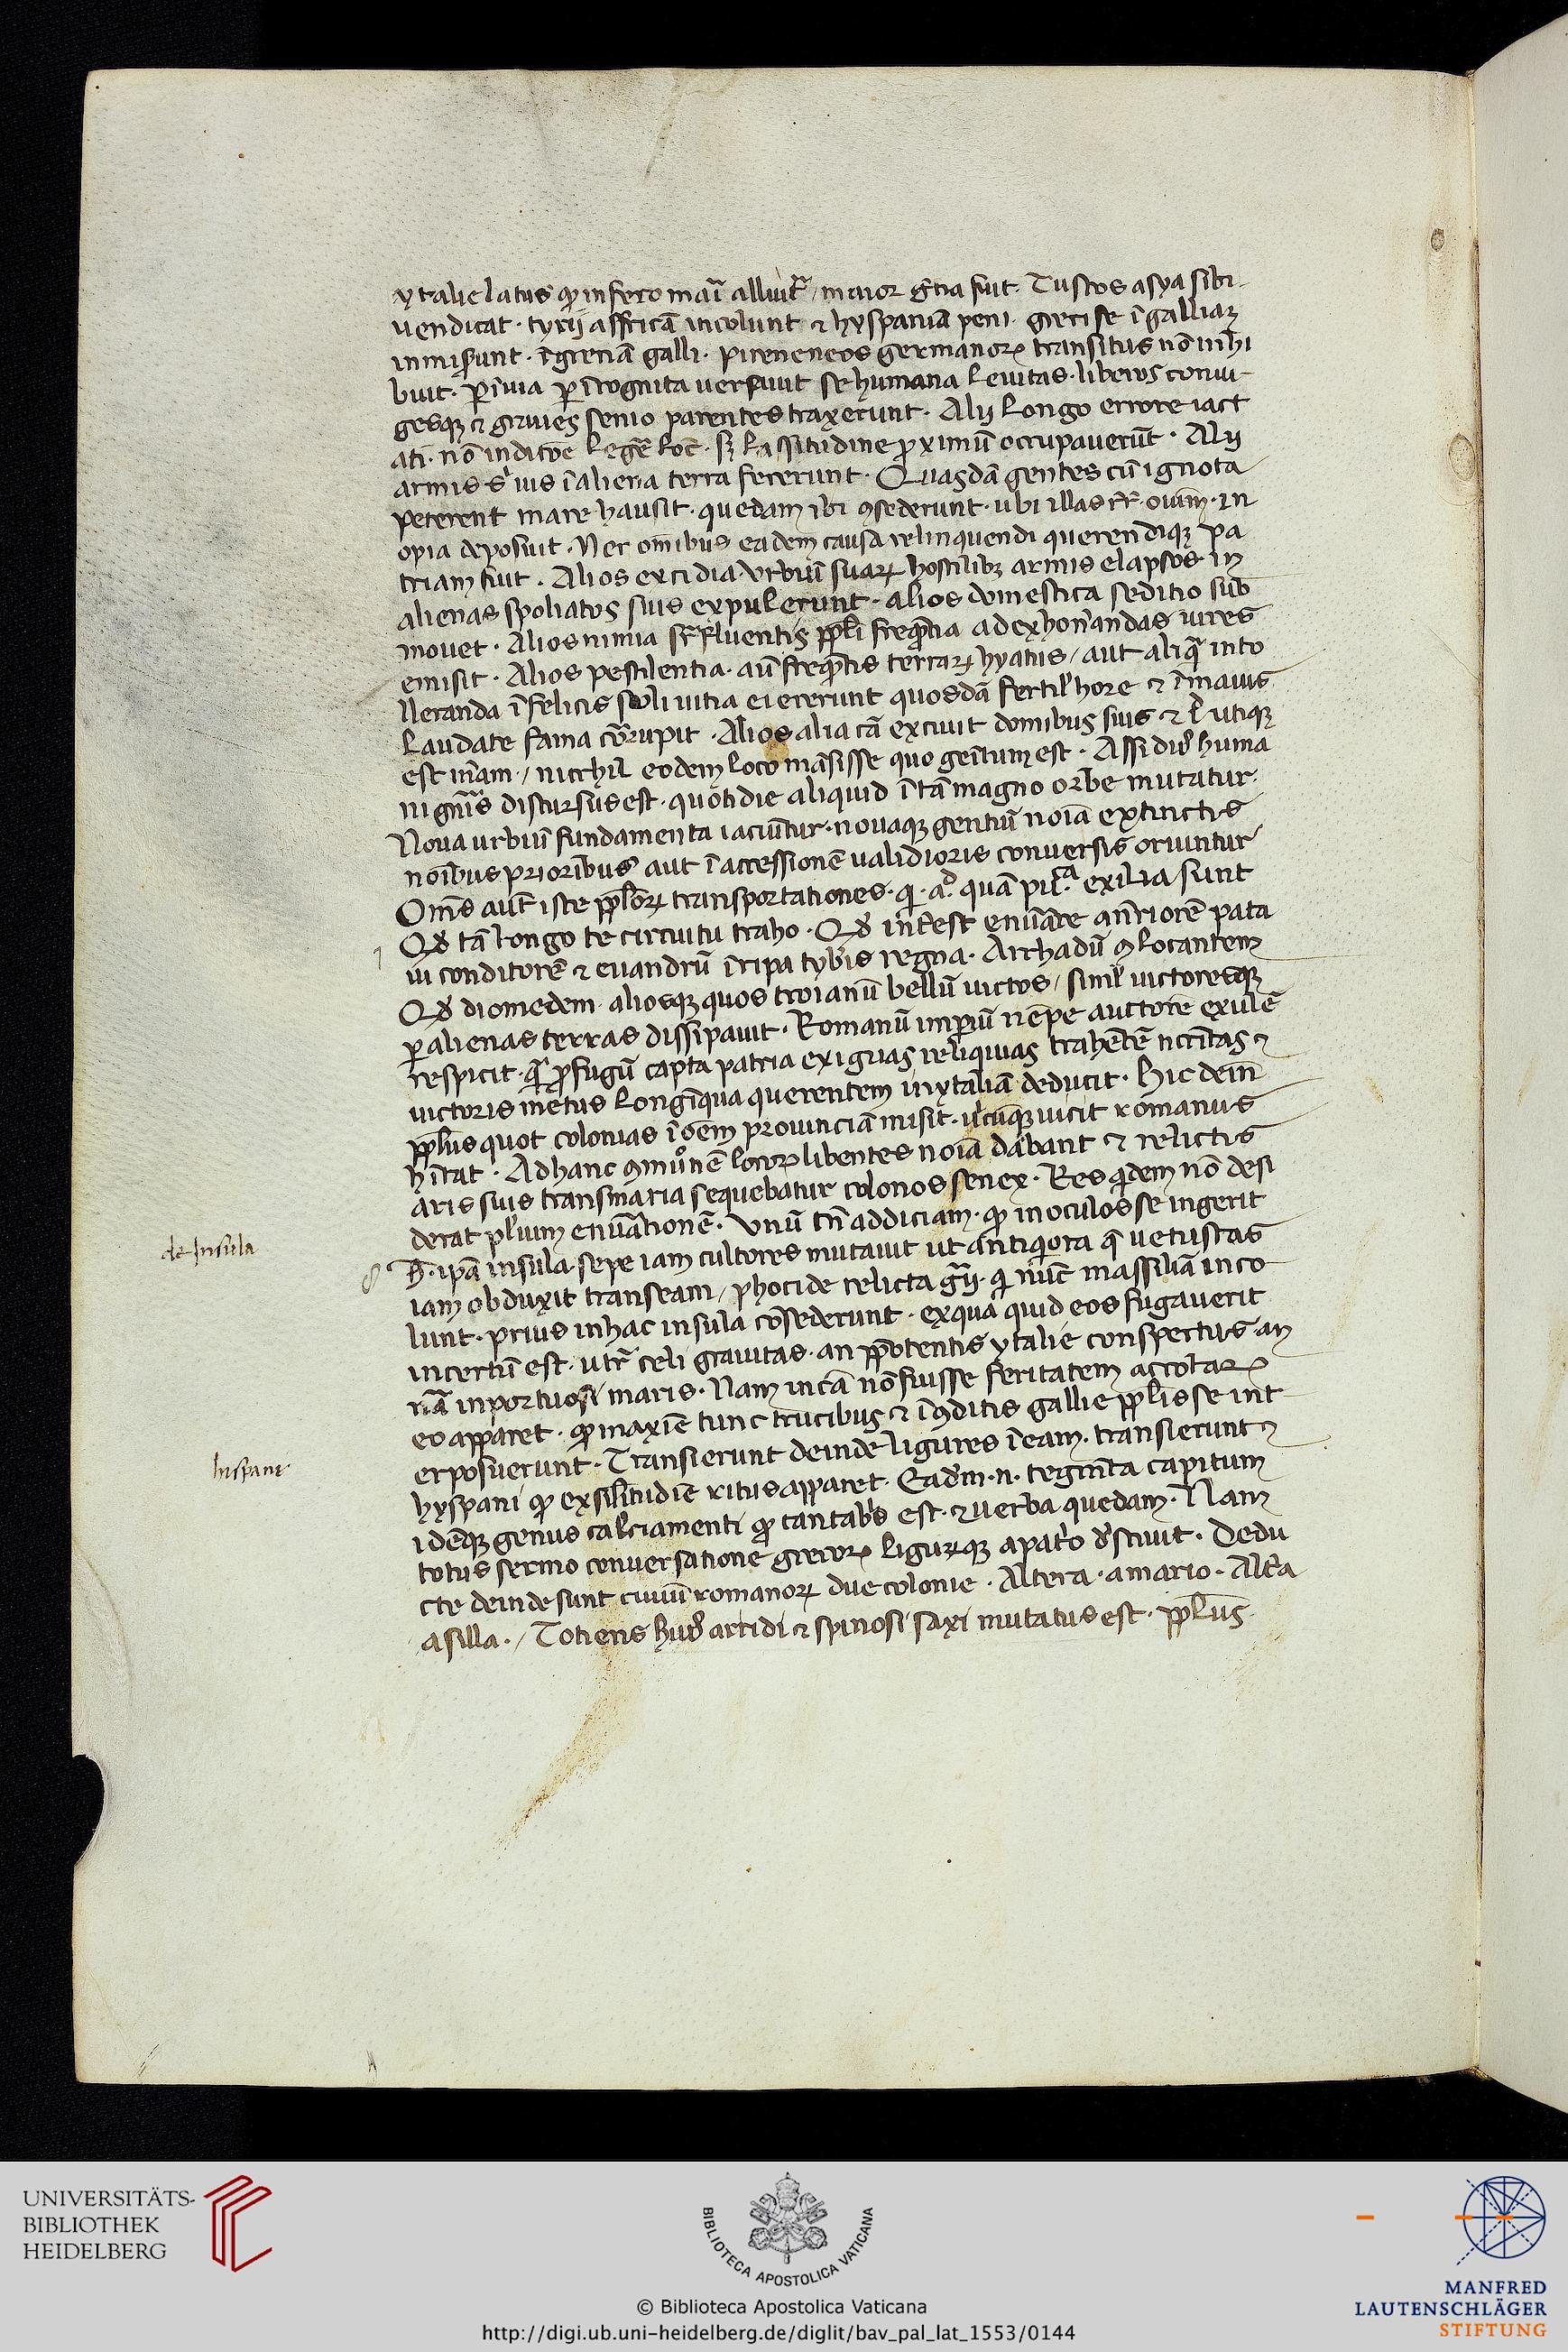 ytalie latus qđ infero maɿ̄ alluit᷑ / maior gr̄cia fuit. Tuscos asya sibi
uendicat · tyrij affricā incolunt ⁊ hyspaniā peni · greci se ī galliaꝫ
inmiserunt · ī greciā galli · pireneneos germanoꝝ transitus nō inhi
buit · ꝑ īuia ꝑ īcognita uersauit se humana leuitas · liberos coniu
gesqꝫ ⁊ graues senio parentes traxerunt · Alij longo errore iact
ati · nō iudicōe legēr locū · sꝫ lassitudine ꝓximū occupauerūt · Alij
armis s̄ ius ī aliena terra fecerunt · Quasdā gentes cū ignota
peterent mare hausit · quedam ibi ꝯsederunt · ubi illas rꝝ oīum · in
opia deposuit · Nec om̄ibus eadem causa relinquendi querendiqꝫ pa
triam fuit · Alios excidia urbiū suaꝝ hostilibꝫ armis elapsos in
alienas spoliatos suis expulerunt · alios domestica seditio sub
mouet · Alios nimia suꝑfluentis ppl̄i freqn̄tia ad exhon̄andas uires
emisit · Alios pestilentia · aut̄ freqn̄tis terraꝝ hyatus / aut aliqͣ into
lleranda īfelicis soli uitia eiecerunt quosdā fertil' hore ⁊ ī maius
laudate fama cōrrupit · Alios alia cā exciuit domibus suis ⁊ l utiqꝫ
est m̄am · / nicchil eodem loco māsisse quo genītum est · Assidu9 huma
ni gn̄is discursus est · quotidie aliquid ī tā magno orbe mutatur
Noua urbiū fundamenta iaciūtur · nouaqꝫ gentiū noīa extinctis
noībus prioribus aut ī accessionē ualidioris conuersis oriuntur
Om̄s aut̄ iste ppl̄oꝝ transportationes · qͥ · ađ quā pu.ͨͣ exilia sunt
Qđ tā longo te circuitu traho · Qđ intest enūare an̄riorē pata
ui conditorē ⁊ euandrū ī ripa tybris regna · Archadū ꝯlocantem
Qđ diomedem · aliosqꝫ quos troianū bellū uictos / simul uictoresqꝫ
ꝑ alienas terras dissipauit · Romanū impiū nēpe auctorē exulē
respicit · quē ꝓfugū capta patria exiguas reliquias trahētē nc̄citas ⁊
uictoris metus longīqua querentem in ytaliā deducit · Hic dein̄
ppl̄us quot colonias ī oēm prouinciā misit · ubicūqꝫ uicit romanus
hītat · Ad hanc ꝯmutōnē locoꝝ libentes noīa dabant ⁊ relictis
aris suis trans maria sequebatur colonos senex · Res qͥdem nō desi
derat pl'ium enūationē · Unū tn̄ addiciam · qđ in oculos se ingerit
H̄ · ip̄a insula · sepe iam cultores mutauit ut antiqͥora q̄ uetustas
iam obduxit transeam / phocide relicta grīj · qͥ nūc massiliā inco
lunt · prius in hac insula cōsederunt · ex qua quid eos fugauerit
incertū est · utꝝ celi grauitas · an ppotentis ytalie conspectus an
nā inportuosi maris · Nam in cā nō fuisse feritatem accolaꝝ
eo apparet · qđ maxīe tunc trucibus ⁊ īꝯditis gallie ppl̄is se int
erposuerunt · Transierunt deinde ligures ī eam · transierunt ⁊
hyspani qđ ex silitudīe ritus apparet · Eadm̄ · n · tegmn̄ta capitum
idēqꝫ genus calciamenti qđ cantabris est · ⁊ uerba quedam · Nam
totus sermo conuersatione grecoꝝ liguꝝqꝫ a patrio d'sciuit · Dedu
cte deinde sunt ciuiū romanoꝝ due colonie · Altera · a mario · Alt̄a
a silla · / Totiens hui9 aridi ⁊ spinosi saxi mutatus est · ppl̄us
de Insula
hispani
UNIVERSITÄTS-
BIBLIOTHEK
HEIDELBERG
BIBLIOTECA APOSTOLICA VATICANA
© Biblioteca Apostolica Vaticana
http://digi.ub.uni-heidelberg.de/diglit/bav_pal_lat_1553/0144
MANFRED
LAUTENSCHLÄGER
STIFTUNG